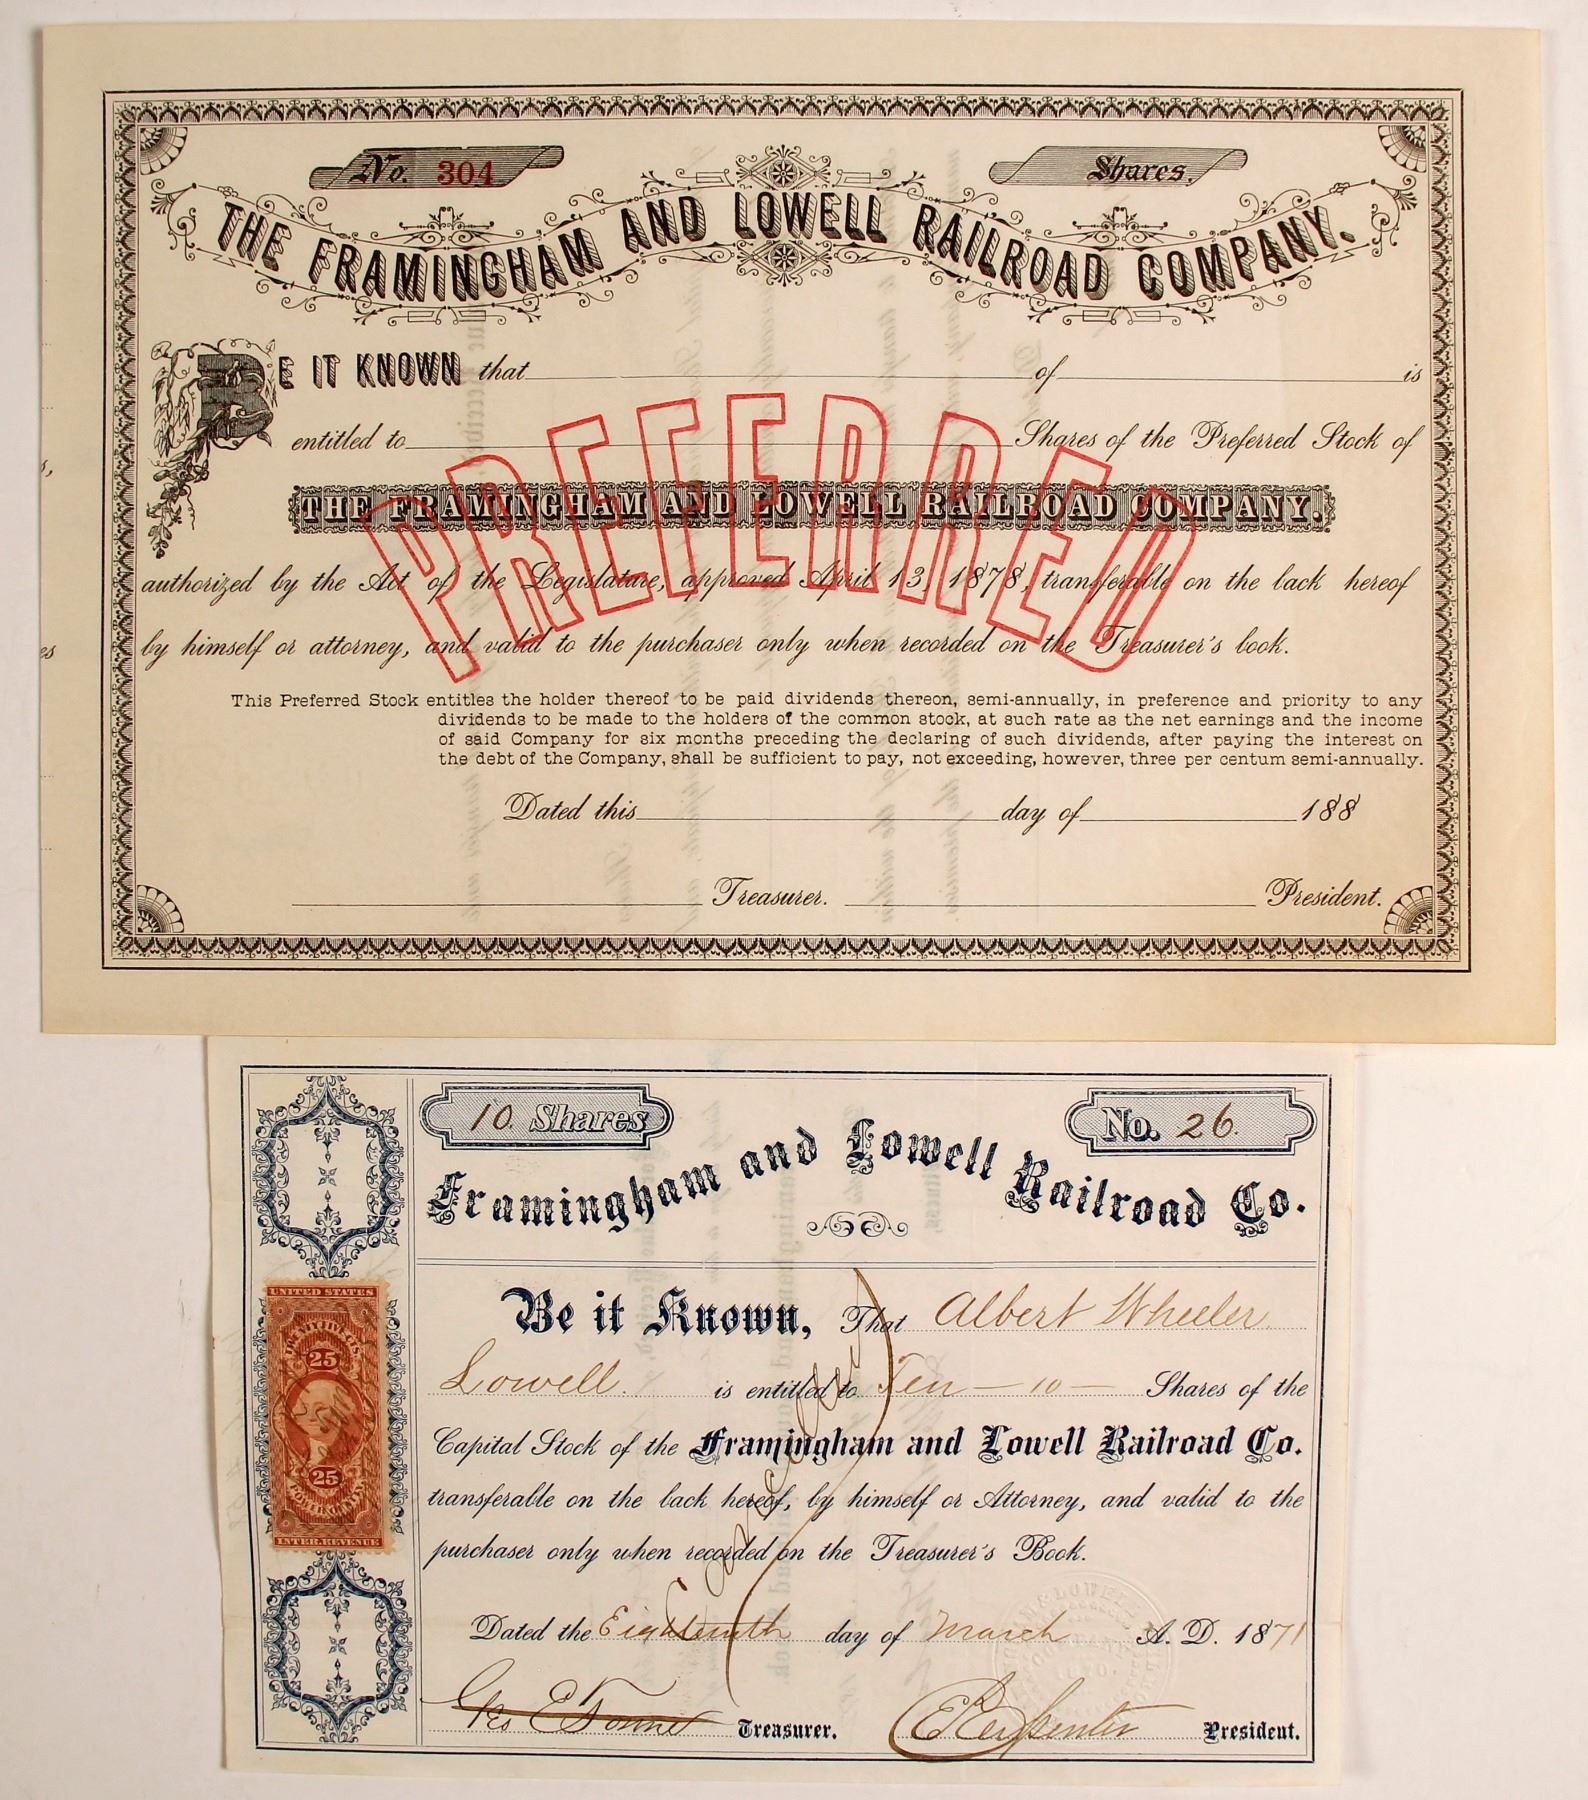 No. 304
Shares.
THE FRAMINGHAM AND LOWELL RAILROAD COMPANY.
BE IT KNOWN that of is
entitled to Shares of the Preferred Stock of
THE FRAMINGHAM AND LOWELL RAILROAD COMPANY.
PREFERRED
authorized by the Act of the Legislature, approved April 13, 1878, transferable on the back hereof
by himself or attorney, and valid to the purchaser only when recorded on the Treasurer's book.
This Preferred Stock entitles the holder thereof to be paid dividends thereon, semi-annually, in preference and priority to any
dividends to be made to the holders of the common stock, at such rate as the net earnings and the income
of said Company for six months preceding the declaring of such dividends, after paying the interest on
the debt of the Company, shall be sufficient to pay, not exceeding, however, three per centum semi-annually.
Dated this day of 188
Treasurer. President.
10. Shares
No. 26.
Framingham and Lowell Railroad Co.
Be it Known, That Albert Wheeler
Lowell. is entitled to Ten - 10 - Shares of the
Capital Stock of the Framingham and Lowell Railroad Co.
transferable on the back hereof, by himself or Attorney, and valid to the
purchaser only when recorded on the Treasurer's Book.
Dated the Eighteenth day of March A. D. 1871
Geo E Towne Treasurer. President.
UNITED STATES
25
25
INTER. REVENUE